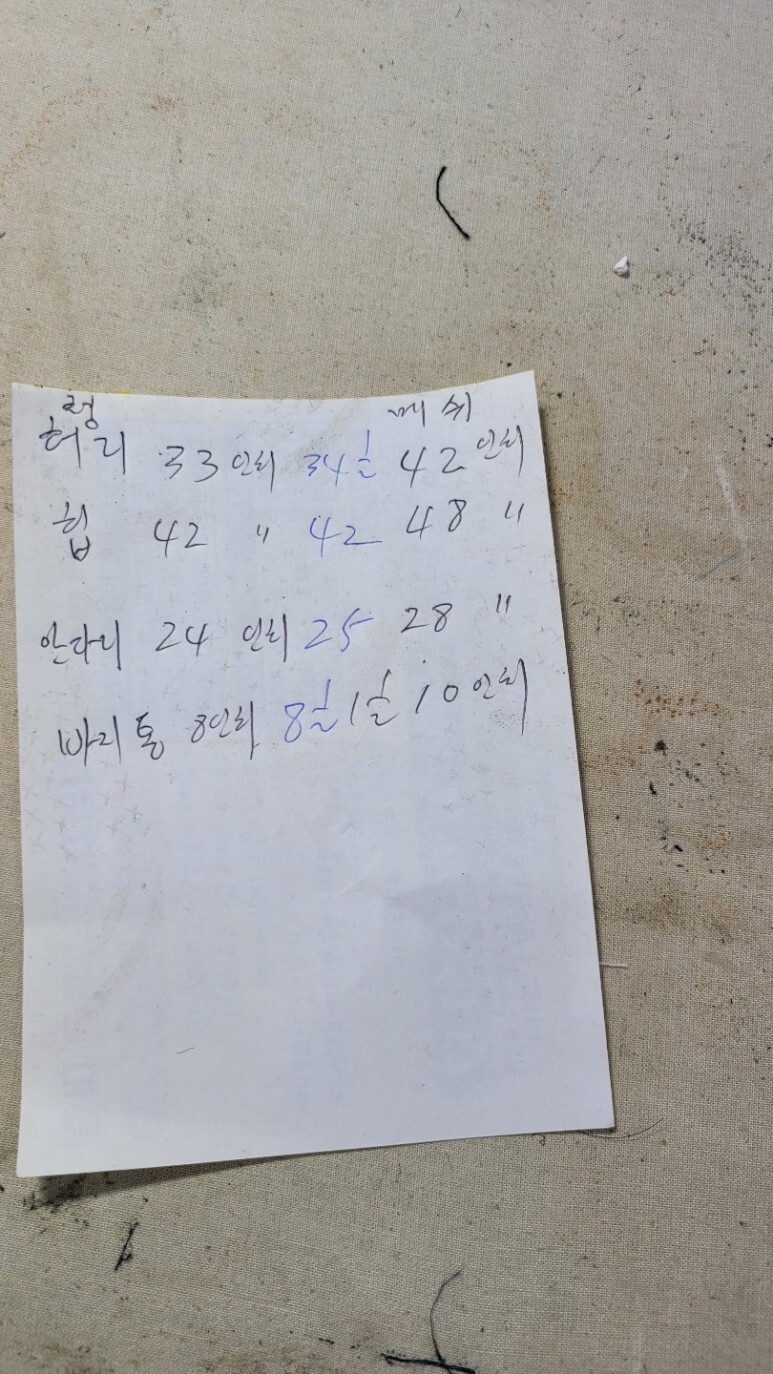 렁 메쉬
허리 33 인치 34½ 42 인치
힙 42 〃 42 48 〃
안다리 24 인치 25 28 〃
바리통 8인치 8½ 1½ 10 인치